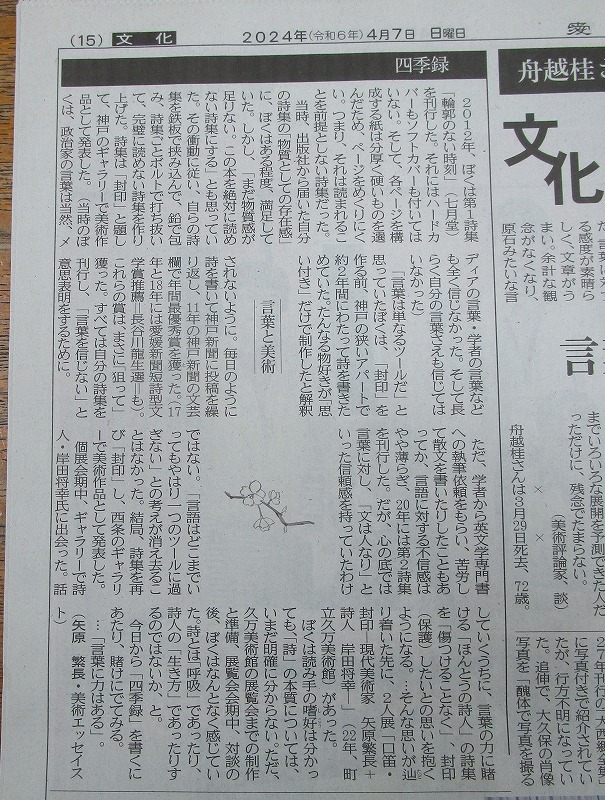 (15) 文化 2024年(令和6年)4月7日 日曜日 愛
四季録
2012年、ぼくは第1詩集
「輪郭のない時刻」(七月堂)
を刊行した。それにはハードカ
バーもソフトカバーも付いては
いない。そして、各ページを構
成する紙は分厚く硬いものを選
んだため、ページをめくりにく
い。つまり、それは読まれるこ
とを前提としない詩集だった。
当時、出版社から届いた自分
の詩集の「物質としての存在感」
に、ぼくはある程度、満足して
いた。しかし、「まだ物質感が
足りない。この本を絶対に読め
ない詩集にする」とも思ってい
た。その衝動に従い、自らの詩
集を鉄板で挟み込んで、鉛で包
み、詩集ごとボルトで打ち抜い
て、完璧に読めない詩集を作り
上げた。詩集は「封印」と題し
て、神戸のギャラリーで美術作
品として発表した。(当時のぼ
くは、政治家の言葉は当然、メ
ディアの言葉・学者の言葉など
も全く信じなかった。そして長
らく自分の言葉さえも信じては
いなかった)
「言葉は単なるツールだ」と
思っていたぼくは、「封印」を
作る前、神戸の狭いアパートで
約2年間にわたって詩を書きた
めていた。たんなる物好きが「思
い付き」だけで制作したと解釈
言葉と美術
されないように。毎日のように
詩を書いて神戸新聞に投稿を繰
り返し、11年の神戸新聞の文芸
欄で年間最優秀賞を獲った。(17
年と18年には愛媛新聞短詩型文
学賞推薦=長谷川龍生選=も)。
これらの賞は、まさに「狙って」
獲った。すべては自分の詩集を
刊行し、「言葉を信じない」と
意思表明をするために。
ただ、学者から英文学専門書
への執筆依頼をもらい、苦労し
て散文を書いたりしたこともあ
ってか、言語に対する不信感は
やや薄らぎ、20年には第2詩集
を刊行した。だが、心の底では
言葉に対し、「文は人なり」と
いった信頼感を持っていたわけ
ではない。「言語はどこまでい
ってもやはり一つのツールに過
ぎない」との考えが消え去るこ
とはなかった。結局、詩集を再
び「封印」し、西条のギャラリ
ーで美術作品として発表した。
個展会期中、ギャラリーで詩
人・岸田将幸氏に出会った。話
していくうちに、言葉の力に賭
ける「ほんとうの詩人」の詩集
を「傷つけることなく」、封印
(保護)したいとの思いを抱く
ようになる。そんな思いが辿
り着いた先に、2人展「口笛・
封印―現代美術家 矢原繁長+
詩人 岸田将幸―」(22年、町
立久万美術館)があった。
ぼくは読み手の嗜好は分かっ
ても、「詩」の本質については、
いまだ明確に分からない。ただ、
久万美術館の展覧会までの制作
と準備、展覧会会期中、対談の
後、ぼくはなんとなく感じてい
た。詩とは「呼吸」であったり、
詩人の「生き方」であったりす
るのではないか、と。
今日から「四季録」を書くに
あたり、賭けにでてみる。
…「言葉に力はある」。
(矢原 繁長・美術エッセイス
ト)
舟越桂さ
文化
る感度が素晴ら
しく、文章がう
まい。余計な観
念がなくなり、
原石みたいな言
言
までいろいろな展開を予測できた人だ
っただけに、残念でたまらない。
(美術評論家、談)
× ×
舟越桂さんは3月29日死去、72歳。
27年刊行の「大西郷全集
に写真付きで紹介されてい
たが、行方不明になってい
た。追伸で、大久保の肖像
写真を「醜体で写真を撮る